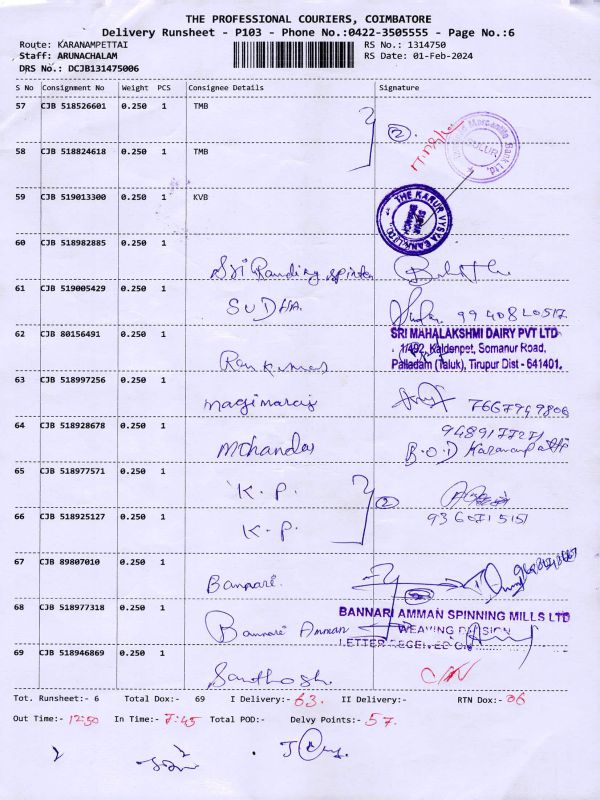 THE PROFESSIONAL COURIERS, COIMBATORE
Delivery Runsheet - P103 - Phone No.:0422-3505555 - Page No.:6
Route: KARANAMPETTAI RS No.: 1314750
Staff: ARUNACHALAM RS Date: 01-Feb-2024
DRS No.: DCJB131475006
S No Consignment No Weight PCS Consignee Details Signature
57 CJB 518526601 0.250 1 TMB
2
Mercantile Bank Ltd.
SULUR
58 CJB 518824618 0.250 1 TMB
59 CJB 519013300 0.250 1 KVB
THE KARUR VYSYA BANK LTD.
60 CJB 518982885 0.250 1
Sri
61 CJB 519005429 0.250 1
SUDHA. 9940820517
62 CJB 80156491 0.250 1 SRI MAHALAKSHMI DAIRY PVT LTD
1/492, Kaldenpet, Somanur Road,
Palladam (Taluk), Tirupur Dist - 641401.
Ramkumar
63 CJB 518997256 0.250 1
7667949806
64 CJB 518928678 0.250 1
Mohandas B.O.D
65 CJB 518977571 0.250 1
K.P. 2
66 CJB 518925127 0.250 1 9360715151
K.P.
67 CJB 89807010 0.250 1
Bannari.
68 CJB 518977318 0.250 1 BANNARI AMMAN SPINNING MILLS LTD
Bannari Amman WEAVING DIVISION
LETTER RECEIVED ON
69 CJB 518946869 0.250 1
Santhosh. C/N
Tot. Runsheet:- 6 Total Dox:- 69 I Delivery:- 63. II Delivery:- RTN Dox:- 06
Out Time:- 12:50 In Time:- 7:45 Total POD:- Delvy Points:- 57.